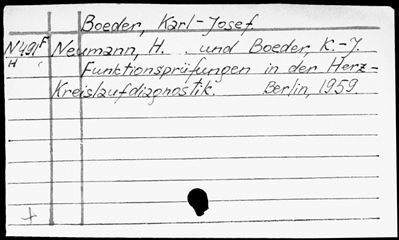 Boeder, Karl-Josef.
N491F Neumann, H. und Boeder, K.-J.
H Funktionsprüfungen in der Herz-
Kreislaufdiagnostik. Berlin, 1959.
+